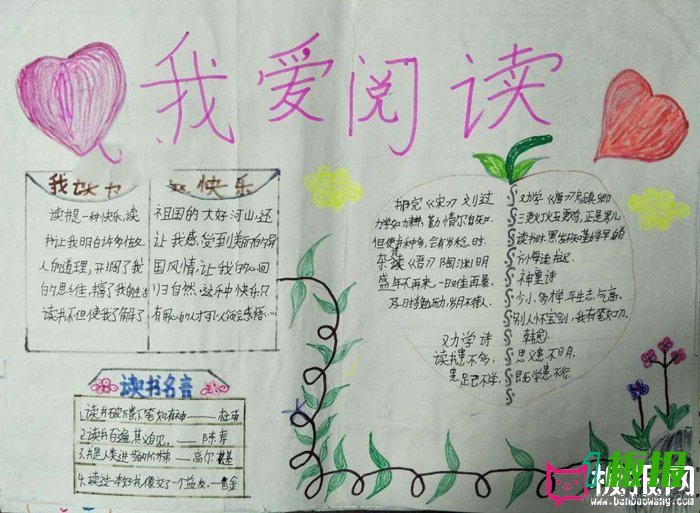 我爱阅读
快乐
读书是一种快乐,读
书让我明白许多做
人的道理,开阔了我
的思维,
读书不但使我了解了
祖国的大好河山,还
让我感受到美丽的
国风情,让我的心回
归自然。这乐中快乐只
有用心的人才
读书名言
1.读书破万卷下笔如有神——杜甫
2.读书百遍,其义自见。——陈寿
3.书是人类进步的阶梯——高尔基
4.读过一本好书,像交了一个益友。
《宋》刘过
力学如力耕,勤惰尔自知。
但使书种多,会有岁稔时。
杂诗《晋》陶渊明
盛年不再来,一日难再晨。
及时当勉励,岁月不待人。
劝学诗
读书患不多,
患足己不学,
劝学《唐》颜真卿
三更灯火五更鸡,正是男儿
读书时。黑发不知勤学早,白
神童诗
少小多才学,平生志气高。
别人怀宝剑,我有笔如刀。
韩愈
思义患不明。
既学患不行。
板报网
www.banbaowang.com